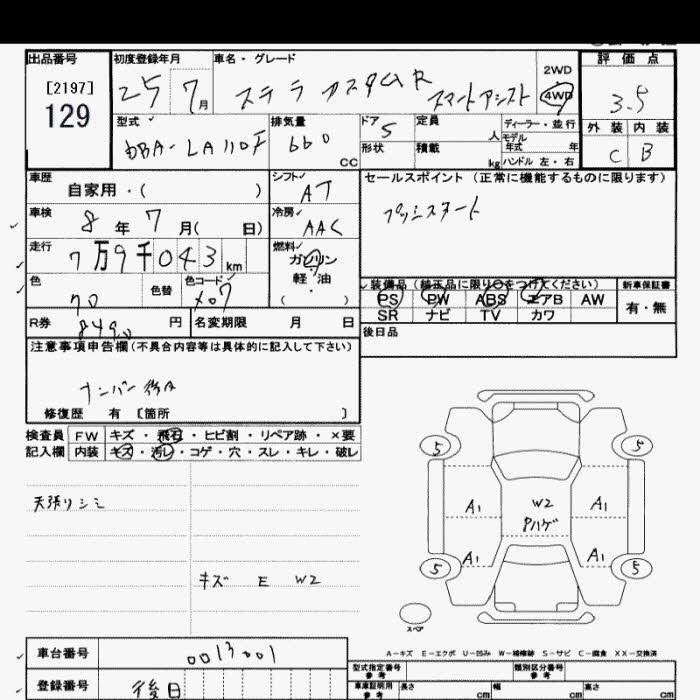 出品番号 初度登録年月 車名・グレード 評価点
[2197]
129
25 7月 ステラ カスタムR スマートアシスト 2WD 4WD 3.5
型式 排気量 ドア 定員 ディーラー・並行 外装 内装
DBA-LA110F 660 CC 5 人 モデル年式 年 C B
形状 積載 kg ハンドル 左・右
車歴 自家用・( ) シフト AT セールスポイント (正常に機能するものに限ります)
車検 8年 7月( 日) 冷房 AAC プッシスタート
走行 7万9千043km 燃料 ガソリン 軽・油
色 色替 色コード X07 装備品 (純正品に限り○をつけてください) 新車保証書
PS PW ABS エアB AW 有・無
SR ナビ TV カワ
R券 8490 円 名変期限 月 日 後日品
注意事項申告欄(不具合内容等は具体的に記入して下さい)
ナンバー
修復歴 有 [箇所 ]
検査員 FW キズ・飛石・ヒビ割・リペア跡・×要
記入欄 内装 キズ・汚レ・コゲ・穴・スレ・キレ・破レ
天張リシミ
キズ E W2
5 5
A1 W2 A1
Pハゲ
A1 A1
5 5
スペア
A-キズ E-エクボ U-凹み W-補修跡 S-サビ C-腐食 XX-交換済
車台番号 0013001 型式指定番号 参考 類別区分番号 参考
登録番号 後日 車庫証明用 参考 長さ cm 幅 cm 高さ cm